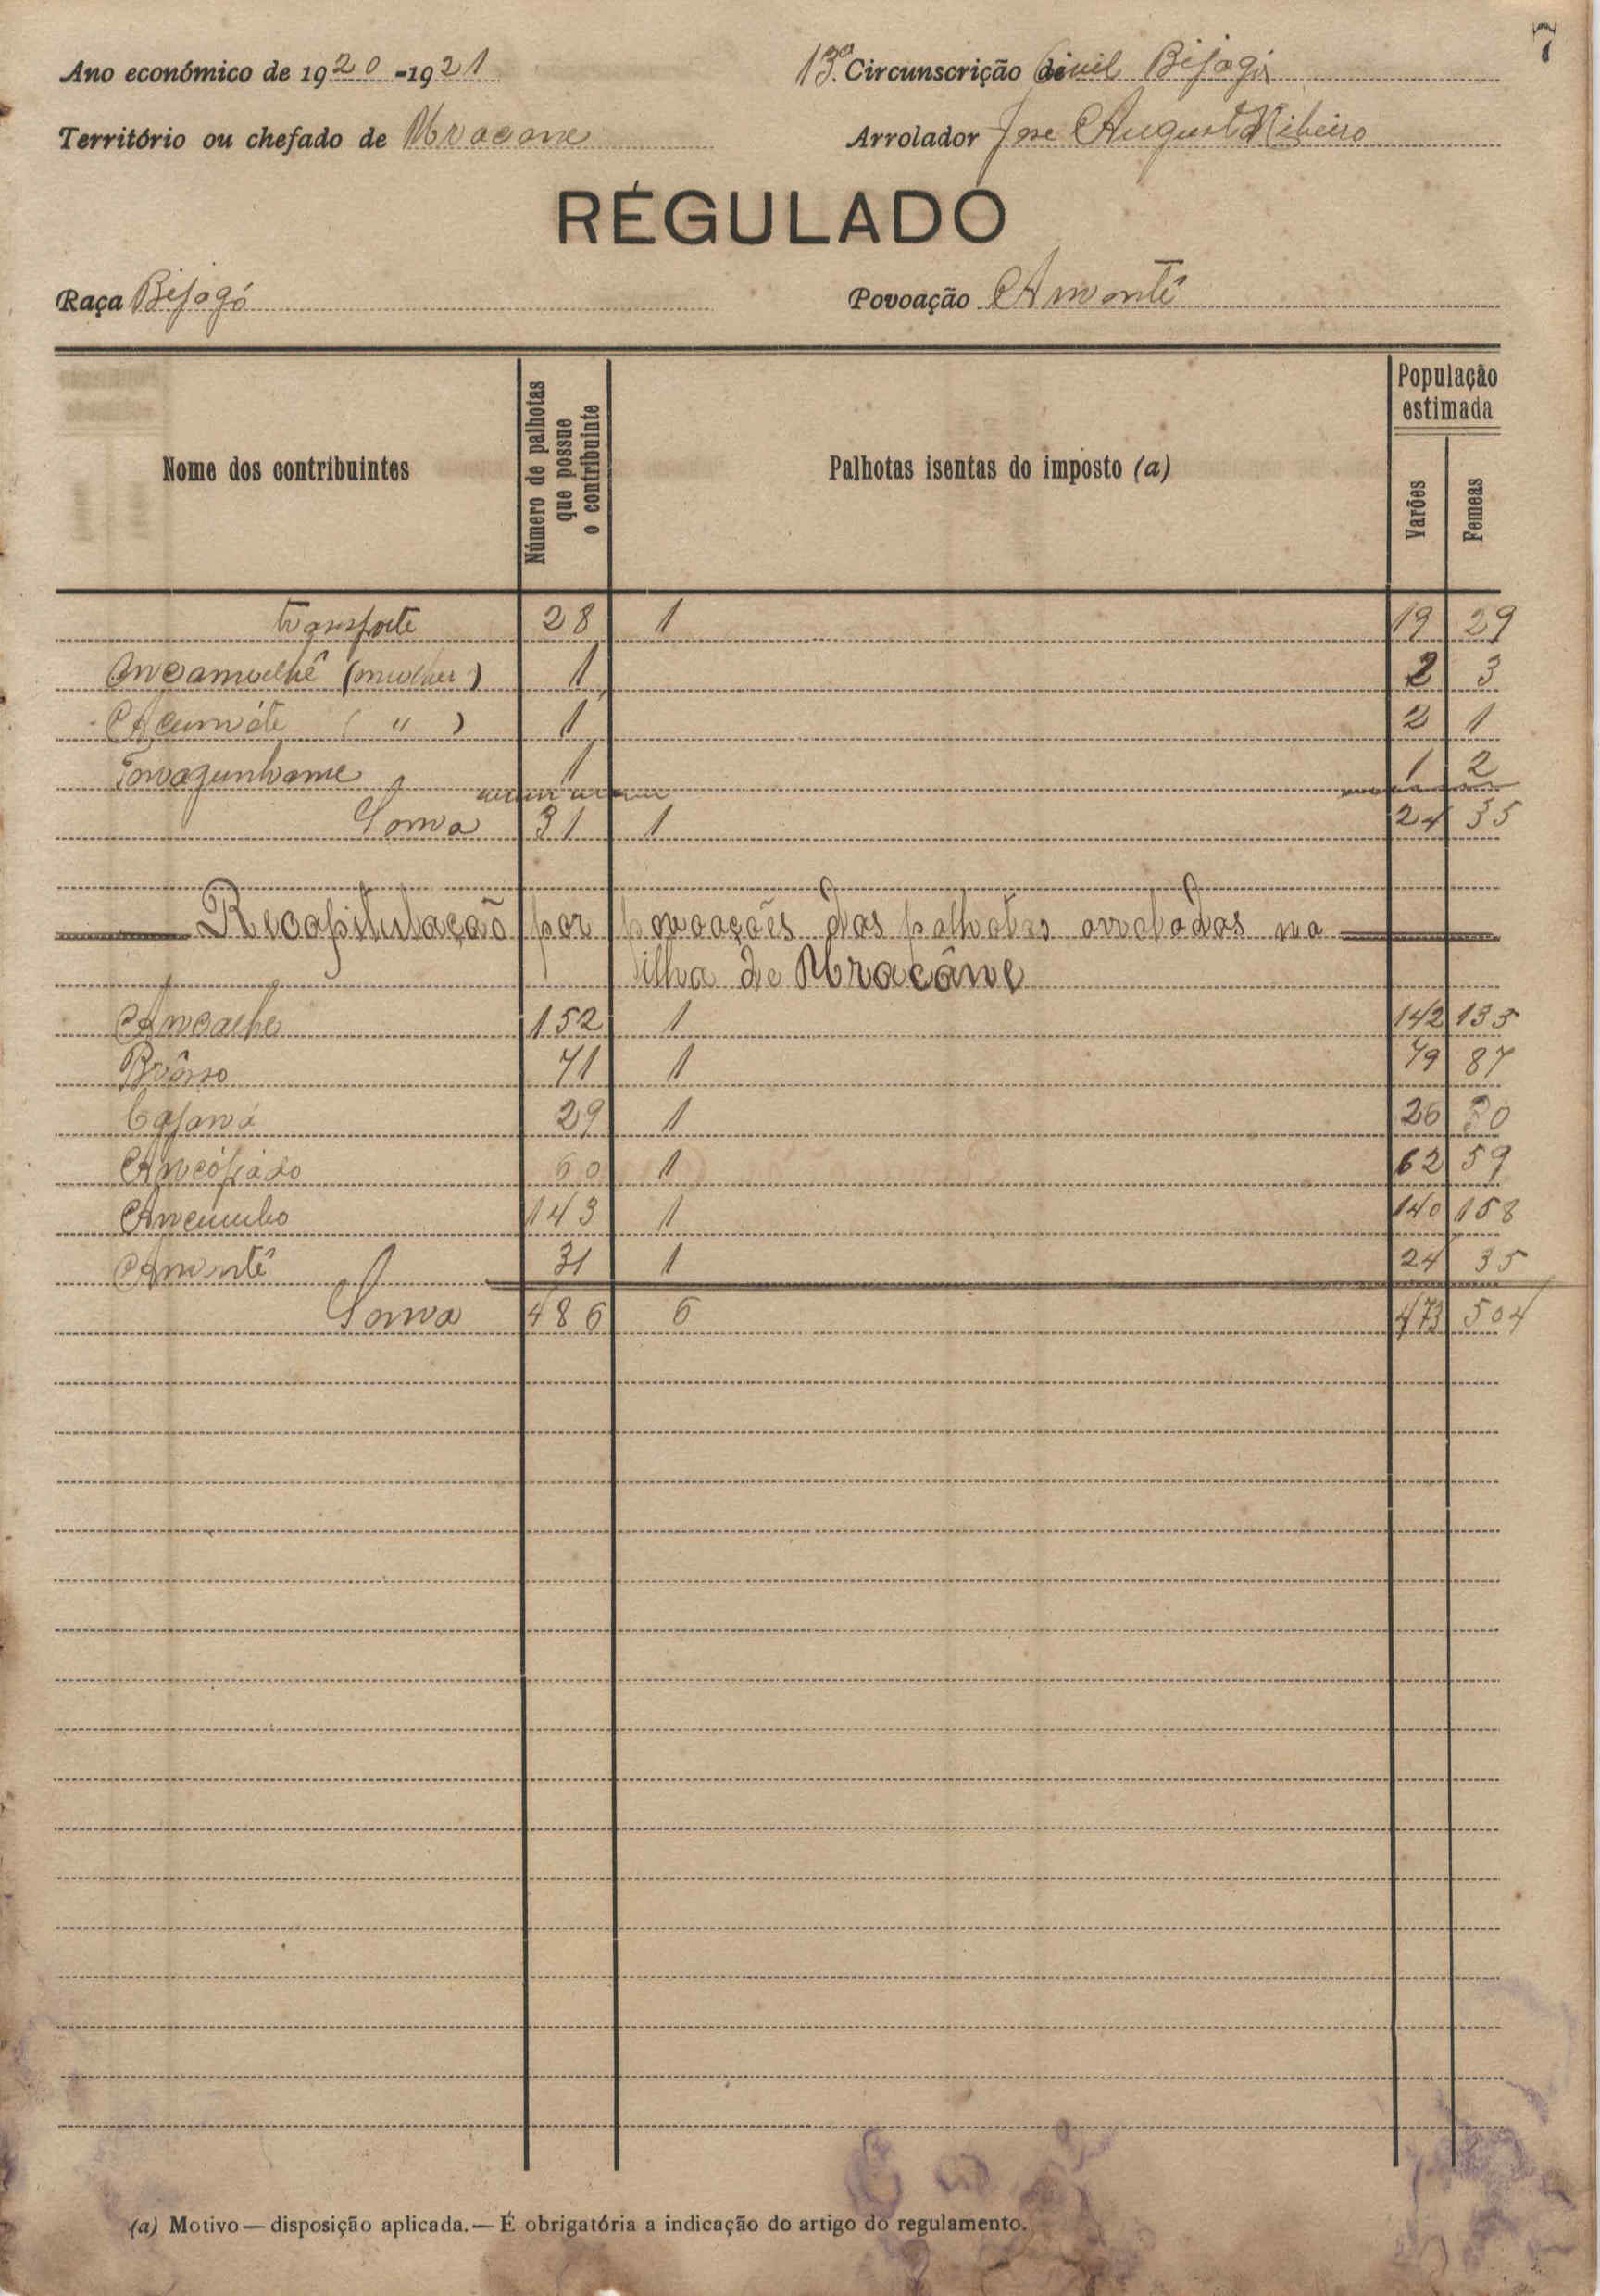 7
Ano económico de 1920-1921
13ª Circunscrição Civil Bijagós
Território ou chefado de Uracane
Arrolador José Augusto Ribeiro
RÉGULADO
Raça Bijagó
Povoação Amontê
Nome dos contribuintes
Número de palhotas que possue o contribuinte
Palhotas isentas do imposto (a)
População estimada
Varões
Femeas
Transporte 28 1 19 29
(mulher) 1 2 3
( " ) 1 2 1
1 1 2
Soma 31 1 24 35
Recapitulação por povoações das palhotas arroladas na
ilha de Uracâne
Ancalhe 152 1 142 135
71 1 79 87
29 1 26 30
60 1 62 59
Ancumbo 143 1 140 158
Amontê 31 1 24 35
Soma 486 6 473 504
(a) Motivo — disposição aplicada. — É obrigatória a indicação do artigo do regulamento.